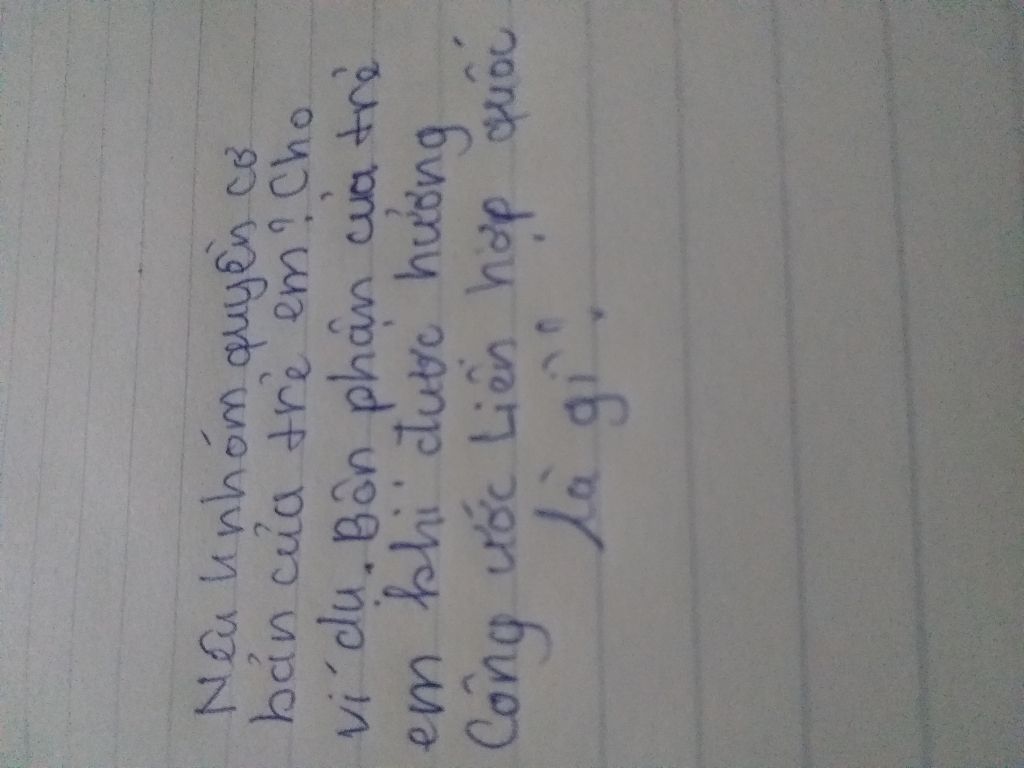 Nêu 4 nhóm quyền cơ
bản của trẻ em? Cho
ví dụ. Bổn phận của trẻ
em khi được hưởng
Công ước Liên hợp quốc
là gì?